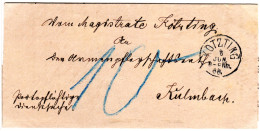 Vom Magistrate Kötzting
An
den Armenpflegschaftsrath
KÖTZTING
8
JUN
Portopflichtige
Dienstsache
Kulmbach.
10